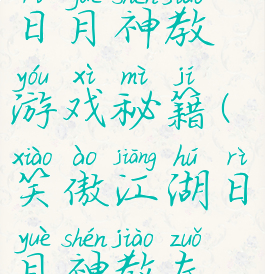 rì yuè shén jiào
日月神教
yóu xì mì jí
游戏秘籍(
xiào ào jiāng hú rì
笑傲江湖日
yuè shén jiào zuǒ
月神教左